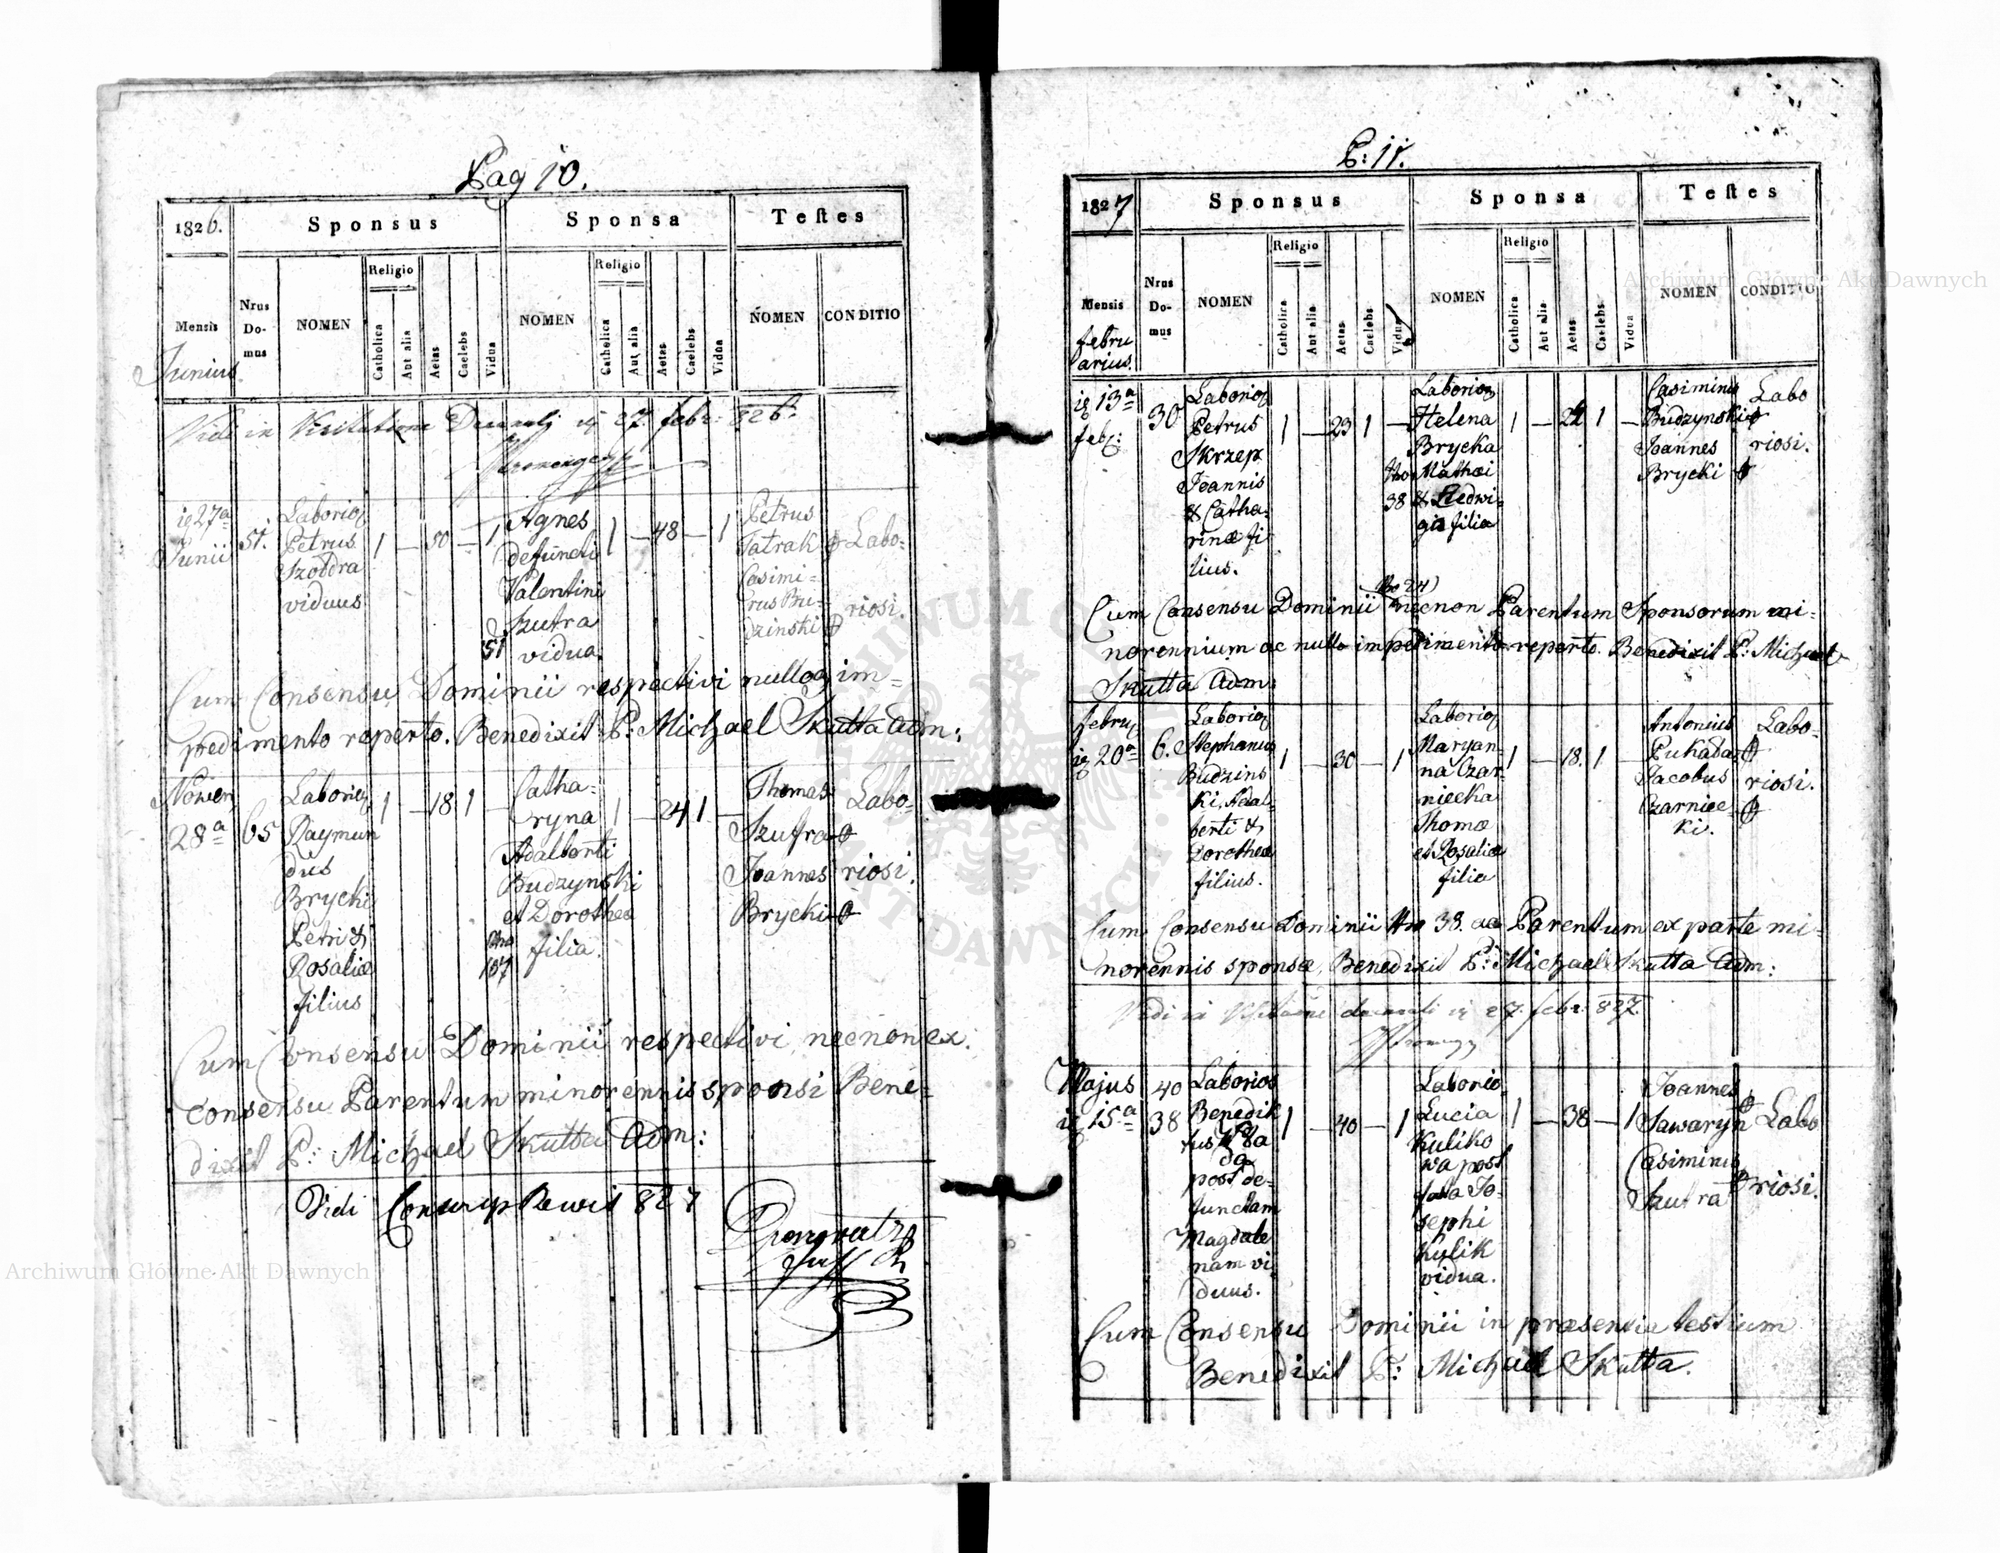 Pag 10.
1826.
Sponsus
Sponsa
Testes
Mensis
Junius.
Nrus Do-mus
NOMEN
Religio
Catholica
Aut alia
Aetas
Caelebs
Vidua
NOMEN
Religio
Catholica
Aut alia
Aetas
Caelebs
Vidua
NOMEN
CONDITIO
Vidi in Visitatione 27 febr: 826.
27a
Junii
51.
Petrus
Szoldra
viduus
1 — 50 — 1
Agnes
defuncti
Valentini
Szutra
51 vidua.
1 — 48 — 1
Petrus
Tatrak
Casimi-
rus Bu-
dzinski
Labo-
riosi.
Cum Consensu Dominii respectivi im-
pedimento reperto. Benedixit P: Michael Skutta Adm:
28a
65
Raymun
dus
Brycki
Petri &
Rosaliæ
filius
1 — 18 1 —
Catha-
ryna
Adalberti
Budzynski
et Dorothea
filia.
Nro
107
1 — 24 1 —
Thomas
Szutra
Joannes
Brycki
Labo-
riosi.
Cum Consensu Dominii respectivi, necnon ex.
consensu Parentum minorennis sponsi Bene-
dixit P: Michael Skutta Adm:
Vidi 827
P: 11.
1827
Sponsus
Sponsa
Testes
Mensis
febru
arius.
Nrus Do-mus
NOMEN
Religio
Catholica
Aut alia
Aetas
Caelebs
Vidua
NOMEN
Religio
Catholica
Aut alia
Aetas
Caelebs
Vidua
NOMEN
CONDITIO
13a
febr:
30
Petrus
Skrzep
Joannis
& Catha-
rinæ fi
lius.
1 — 23 1 —
Helena
Brycka
Nro Mathæi
38 & Hedwi-
gis filia
1 — 1 —
Casimirus
Budzynski
Joannes
Brycki
Labo
riosi.
Nro 24)
Cum Consensu Dominii necnon Parentum Sponsorum mi-
norennium ac nullo impedimento reperto. Benedixit P: Michael
Skutta Adm:
20a
6.
Stephanus
Budzins
ki, Adal-
berti &
Dorothea
filius.
1 — 30 — 1
Maryan-
na Czar-
niecka
Thomæ
et Rosaliæ
filia
1 — 18. 1 —
Antonius
Pukada
Jacobus
Czarniec
ki.
Labo-
riosi.
Cum Consensu Dominii Nro 38. ac Parentum ex parte mi-
norennis sponsæ, Benedixit P: Michael Skutta Adm:
Vidi in 27. febr: 827.
Majus
15a
40
38
Laborios
Benedik
tus
post de-
functam
Magdale
nam vi
duus.
1 — 40 — 1
Laborio.
Lucia
Kuliko
wa post
Jo-
sephi
Kulik
vidua.
1 — 38 — 1
Joannes
Sawaryn
Casimirus
Szutra
Labo
riosi.
Cum Consensu Dominii in præsentia testium
Benedixit P: Michael Skutta.
Archiwum Główne Akt Dawnych
Archiwum Główne Akt Dawnych